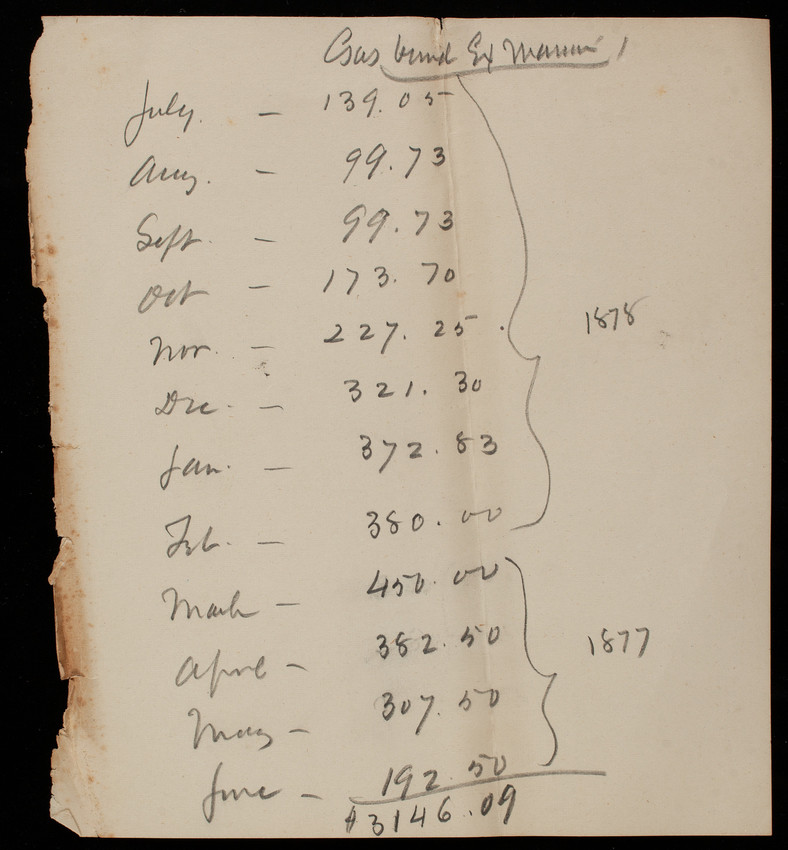 Gas burnd Ex Mansion
July. — 139.05
Aug. — 99.73
Sept. — 99.73
Oct — 173.70
Nov. — 227.25.
Dec. — 321.30
Jan. — 372.83
1878
Feb. — 380.00
March — 450.00
April — 382.50
1877
May — 307.50
June — 192.50
$3146.09